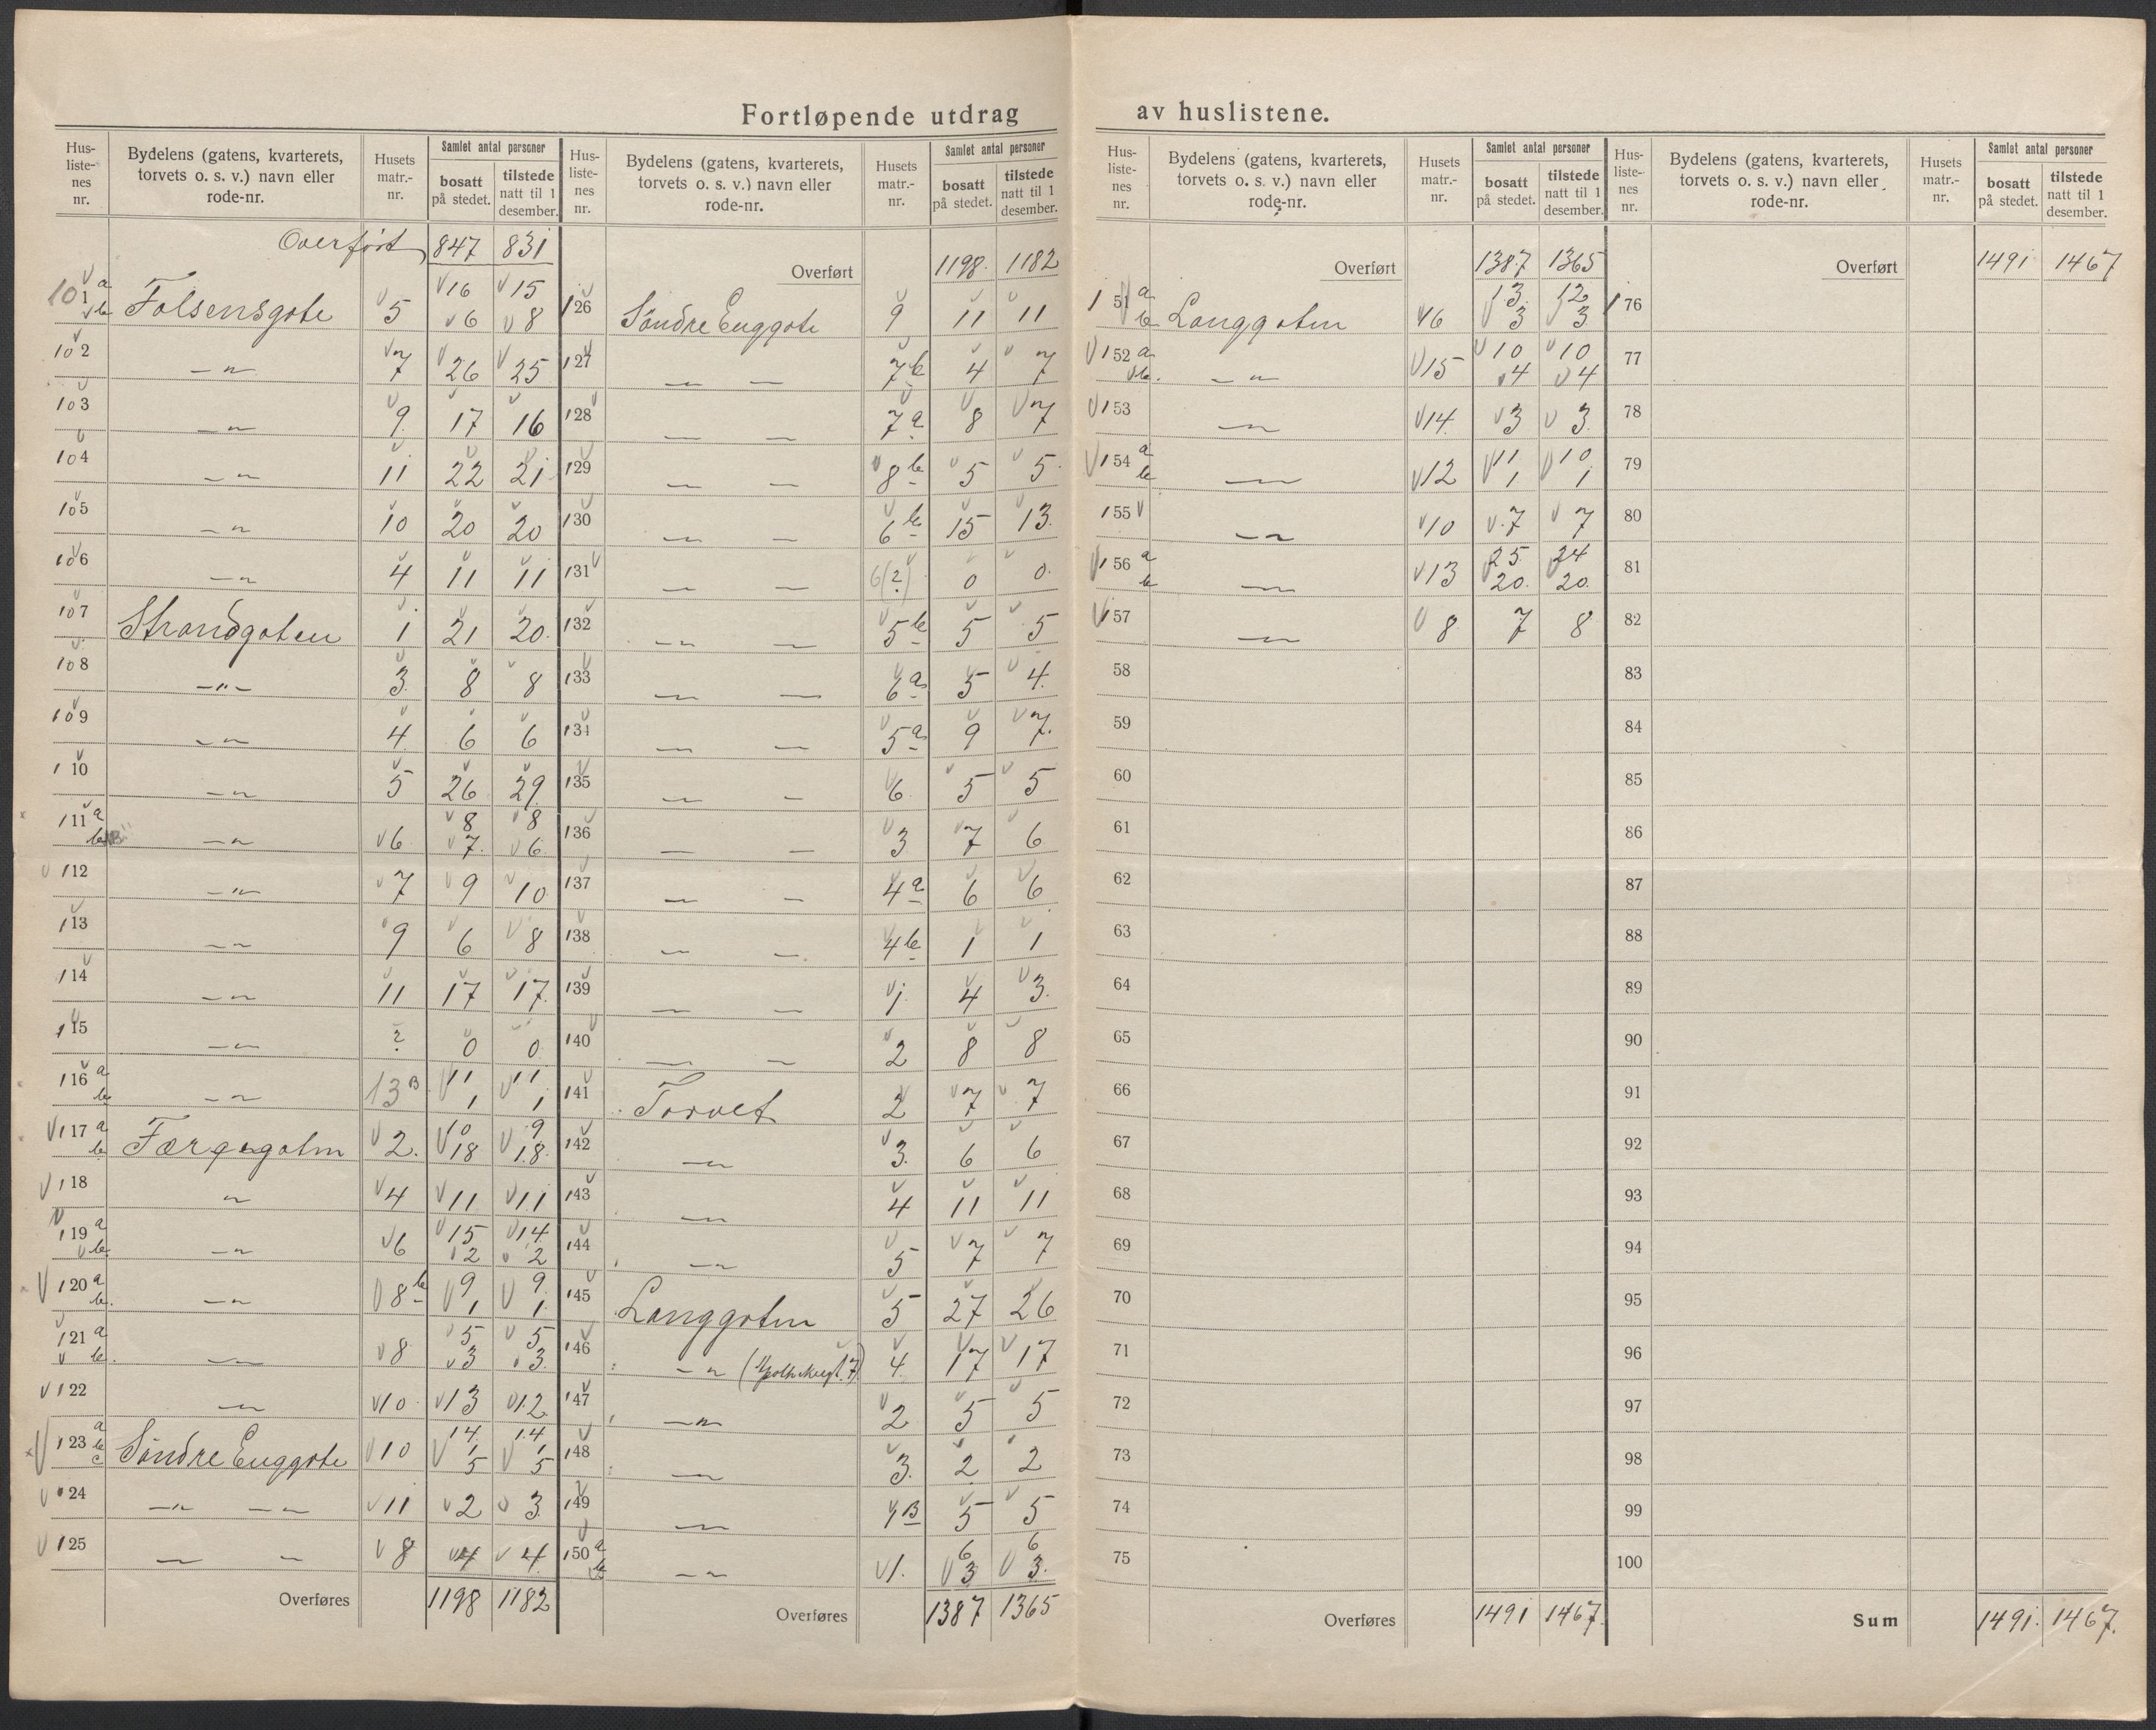 Fortløpende utdrag av huslistene.
Hus-listenes nr. | Bydelens (gatens, kvarterets, torvets o. s. v.) navn eller rode-nr. | Husets matr.-nr. | Samlet antal personer bosatt på stedet. | tilstede natt til 1 desember.
Overført 847 831
101 a b Folsensgote 5 16 15 6 8
102 — " — 7 26 25
103 — " — 9 17 16
104 — " — 11 22 21
105 — " — 10 20 20
106 — " — 4 11 11
107 Strandgaten 1 21 20
108 — " — 3 8 8
109 — " — 4 6 6
110 — " — 5 26 29
111 a b — " — 6 8 8 7 6
112 — " — 7 9 10
113 — " — 9 6 8
114 — " — 11 17 17
115 — " — ? 0 0
116 a b — " — 13 B 11 11 1 1
117 a b Færgegatm 2 10 9 18 18
118 " 4 11 11
119 a b — " — 6 15 14 2 2
120 a b — " — 8 b 9 9 1 1
121 a b — " — 8 5 5 3 3
122 — " — 10 13 12
123 a b c Søndre Enggote 10 14 14 1 1 5 5
124 — " — — " — 11 2 3
125 — " — 8 4 4
Overføres 1198 1182
Hus-listenes nr. | Bydelens (gatens, kvarterets, torvets o. s. v.) navn eller rode-nr. | Husets matr.-nr. | Samlet antal personer bosatt på stedet. | tilstede natt til 1 desember.
Overført 1198 1182
126 Søndre Enggote 9 11 11
127 — " — 7 b 4 7
128 — " — 7 a 8 7
129 — " — 8 b 5 5
130 — " — 6 b 15 13
131 — " — 6(?) 0 0
132 — " — 5 b 5 5
133 — " — 6 a 5 4
134 — " — 5 a 9 7
135 — " — 6 5 5
136 — " — 3 7 6
137 — " — 4 a 6 6
138 — " — 4 b 1 1
139 — " — 1 4 3
140 — " — 2 8 8
141 Torvet 2 7 7
142 — " — 3 6 6
143 — " — 4 11 11
144 — " — 5 7 7
145 Langgotm 5 27 26
146 — " — 4 17 17
147 — " — 2 5 5
148 — " — 3 2 2
149 — " — B 5 5
150 a b — " — 1 6 6 3 3
Overføres 1387 1365
Hus-listenes nr. | Bydelens (gatens, kvarterets, torvets o. s. v.) navn eller rode-nr. | Husets matr.-nr. | Samlet antal personer bosatt på stedet. | tilstede natt til 1 desember.
Overført 1387 1365
151 a b Langgotm 6 13 12 3 3
152 a b — " — 15 10 10 4 4
153 — " — 14 3 3
154 a b — " — 12 11 10 1 1
155 — " — 10 7 7
156 a b — " — 13 25 24 20 20
157 — " — 8 7 8
58
59
60
61
62
63
64
65
66
67
68
69
70
71
72
73
74
75
Overføres 1491 1467
Hus-listenes nr. | Bydelens (gatens, kvarterets, torvets o. s. v.) navn eller rode-nr. | Husets matr.-nr. | Samlet antal personer bosatt på stedet. | tilstede natt til 1 desember.
Overført 1491 1467
176
77
78
79
80
81
82
83
84
85
86
87
88
89
90
91
92
93
94
95
96
97
98
99
100
Sum 1491 1467